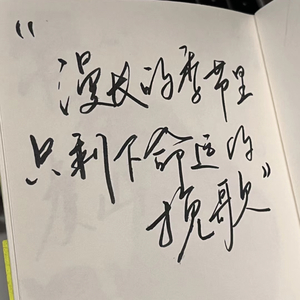 “漫长的季节里
只剩下命运的
挽歌”